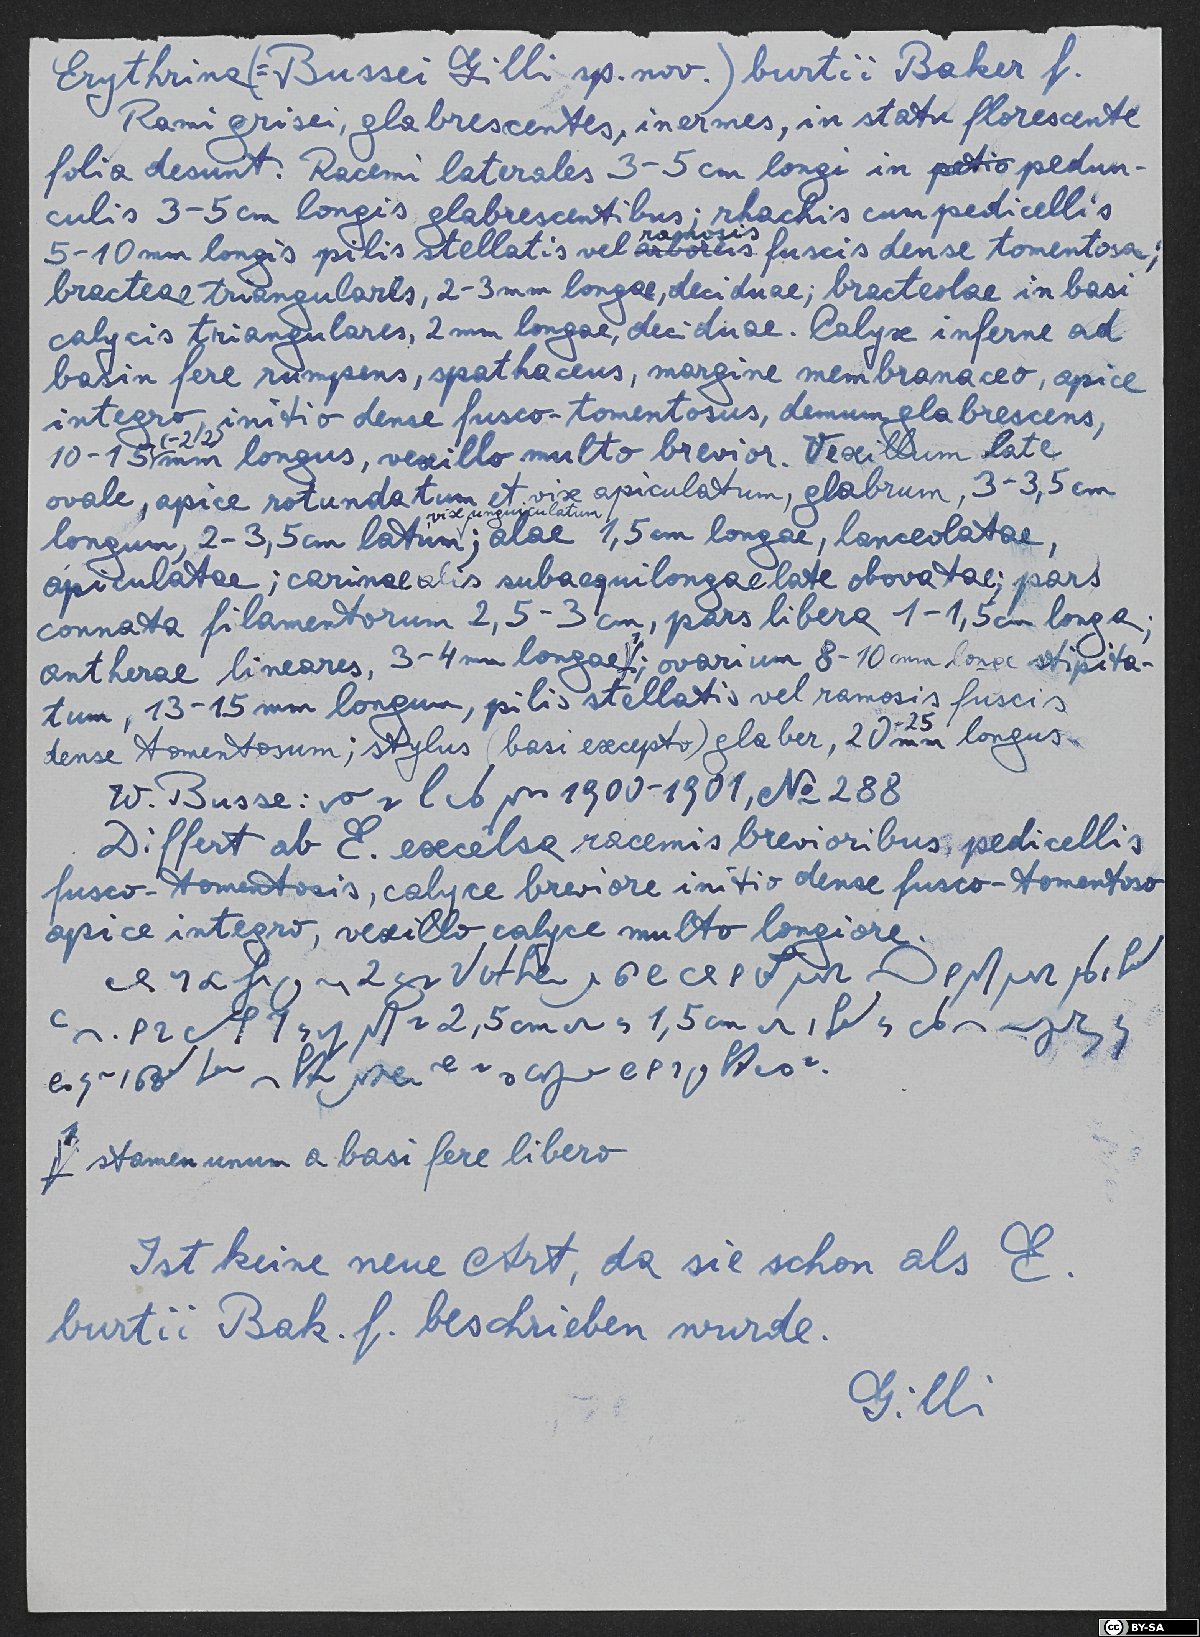 Erythrina (= Bussei Gilli sp. nov.) burtii Baker f.
Rami grisei, glabrescentes, inermes, in statu florescente
folia desunt. Racemi laterales 3-5 cm longi in petio pedun-
culis 3-5 cm longis glabrescentibus; rhachis cum pedicellis
ramosis
5-10 mm longis pilis stellatis vel arboreis fuscis dense tomentosa;
bracteae triangulares, 2-3 mm longae, deciduae; bracteolae in basi
calycis triangulares, 2 mm longae, deciduae. Calyx inferne ad
basin fere rumpens, spathaceus, margine membranaceo, apice
integro, initio dense fusco-tomentosus, demum glabrescens,
10-15 (-22) mm longus, vexillo multo brevior. Vexillum late
ovale, apice rotundatum et vix apiculatum, glabrum, 3-3,5 cm
, vix unguiculatum
longum, 2-3,5 cm latum; alae 1,5 cm longae, lanceolatae,
apiculatae; carinae alis subaequilongae late obovatae; pars
connata filamentorum 2,5-3 cm, pars libera 1-1,5 cm longa;
antherae lineares, 3-4 mm longae 1; ovarium 8-10 mm longe stipita-
tum, 13-15 mm longum, pilis stellatis vel ramosis fuscis
dense tomentosum; stylus (basi excepto) glaber, 20-25 mm longus.
W. Busse: 1900-1901, № 288
Differt ab E. excelsa racemis brevioribus, pedicellis
fusco-tomentosis, calyce breviore initio dense fusco-tomentoso
apice integro, vexillo calyce multo longiore.
2
2,5 cm 1,5 cm
1 stamen unum a basi fere libero
Ist keine neue Art, da sie schon als E.
burtii Bak. f. beschrieben wurde.
Gilli
BY-SA